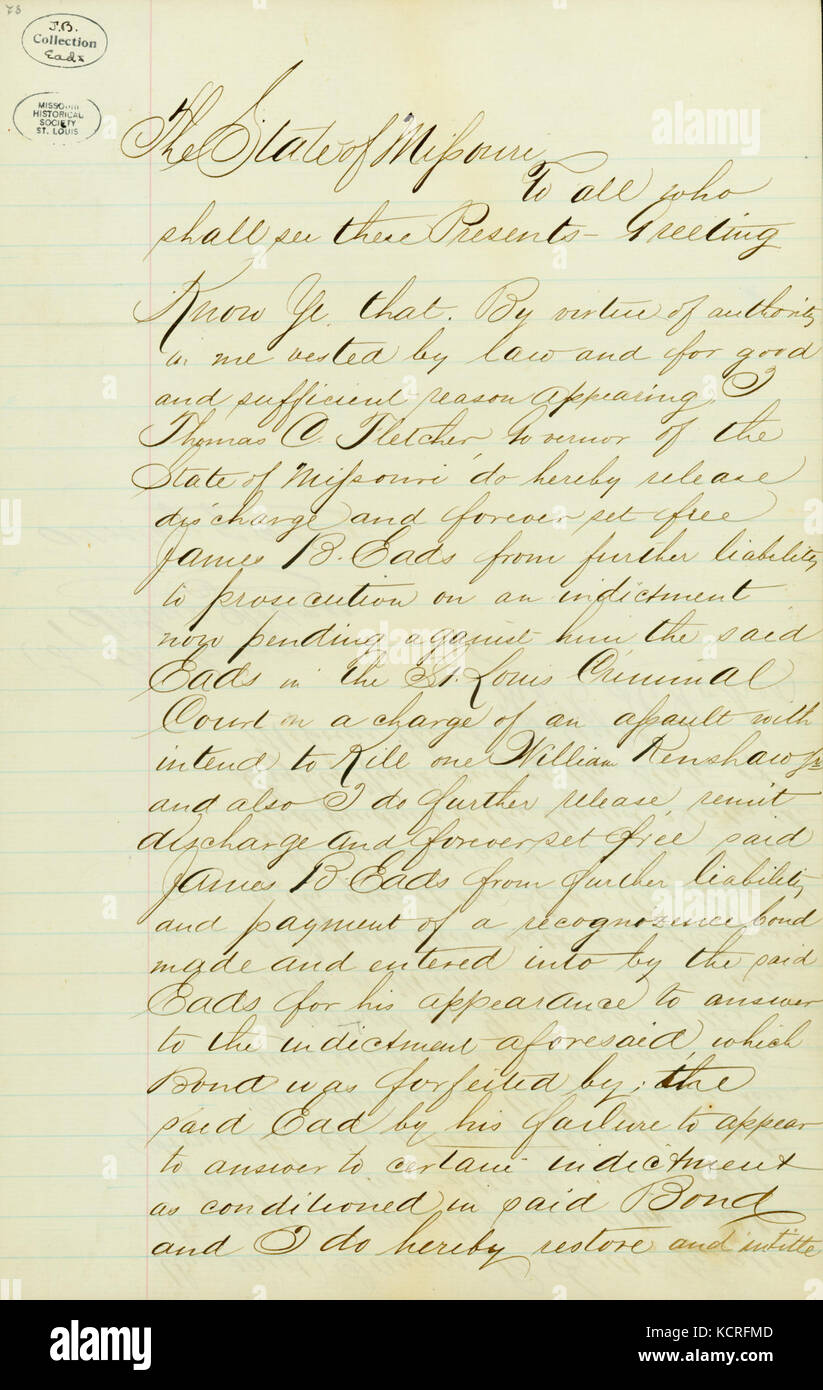 78
J.B.
Collection
Eads
MISSOURI
HISTORICAL
SOCIETY
ST. LOUIS
The State of Missouri
To all who
shall see these Presents – Greeting
Know Ye that. By virtue of authority
in me vested by law and for good
and sufficient reason appearing, I
Thomas C. Fletcher, Governor of the
State of Missouri do hereby release
discharge and forever set free
James B. Eads from further liability
to prosecution on an indictment
now pending against him the said
Eads in the St. Louis Criminal
Court on a charge of an assault with
intend to Kill one William Renshaw Jr
and also I do further release, remit
discharge and forever set free said
James B. Eads from further liability
and payment of a recognozence bond
made and entered into by the said
Eads for his appearance to answer
to the indictment aforesaid, which
Bond was forfeited by, the
said Ead by his failure to appear
to answer to certain indictment
as conditioned in said Bond
and I do hereby restore and intitle
alamy
Image ID: KCRFMD
www.alamy.com